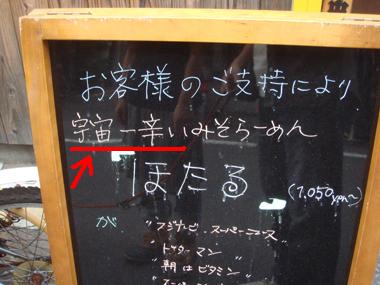 お客様のご支持により
宇宙一辛いみそらーめん
ほたる
(1,050yen〜)
が
"フジテレビ スーパーニュース"
"ドッターマン"
"朝はビタミン"